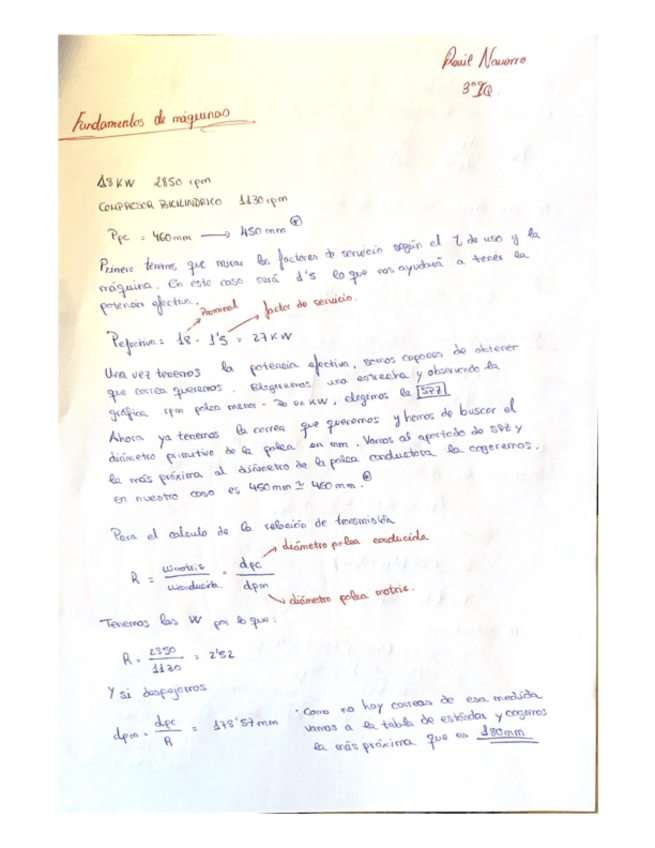 Raúl Navarro
3º IQ.
Fundamentos de máquinas
18 KW 2850 rpm
COMPRESOR BICILINDRICO 1130 rpm
Ppc = 460 mm → 450 mm *
Primero tenemos que mirar los factores de servicio según el t de uso y la
máquina. En este caso será 1'5 lo que nos ayudará a tener la
potencia efectiva.
Pnominal
factor de servicio.
Pefectiva = 18 · 1'5 = 27 KW
Una vez tenemos la potencia efectiva, somos capaces de obtener
que correa queremos. Elegiremos una estrecha y observando la
gráfica rpm polea menor - Pc en KW, elegimos la SPZ
Ahora ya tenemos la correa que queremos y hemos de buscar el
diámetro primitivo de la polea en mm. Vamos al apartado de SPZ y
la más próxima al diámetro de la polea conductora la cogeremos.
en nuestro caso es 450 mm ≃ 460 mm. *
Para el calculo de la relación de transmisión
diámetro polea conducida
R = wmotriz / wconducida = dpc / dpm
diámetro polea motriz.
Tenemos las W por lo que:
R = 2850 / 1130 = 2'52
Y si despejamos
dpm = dpc / R = 178'57 mm
· Como no hay correas de esa medida
vamos a la tabla de estándar y cogemos
la más próxima que es 180 mm